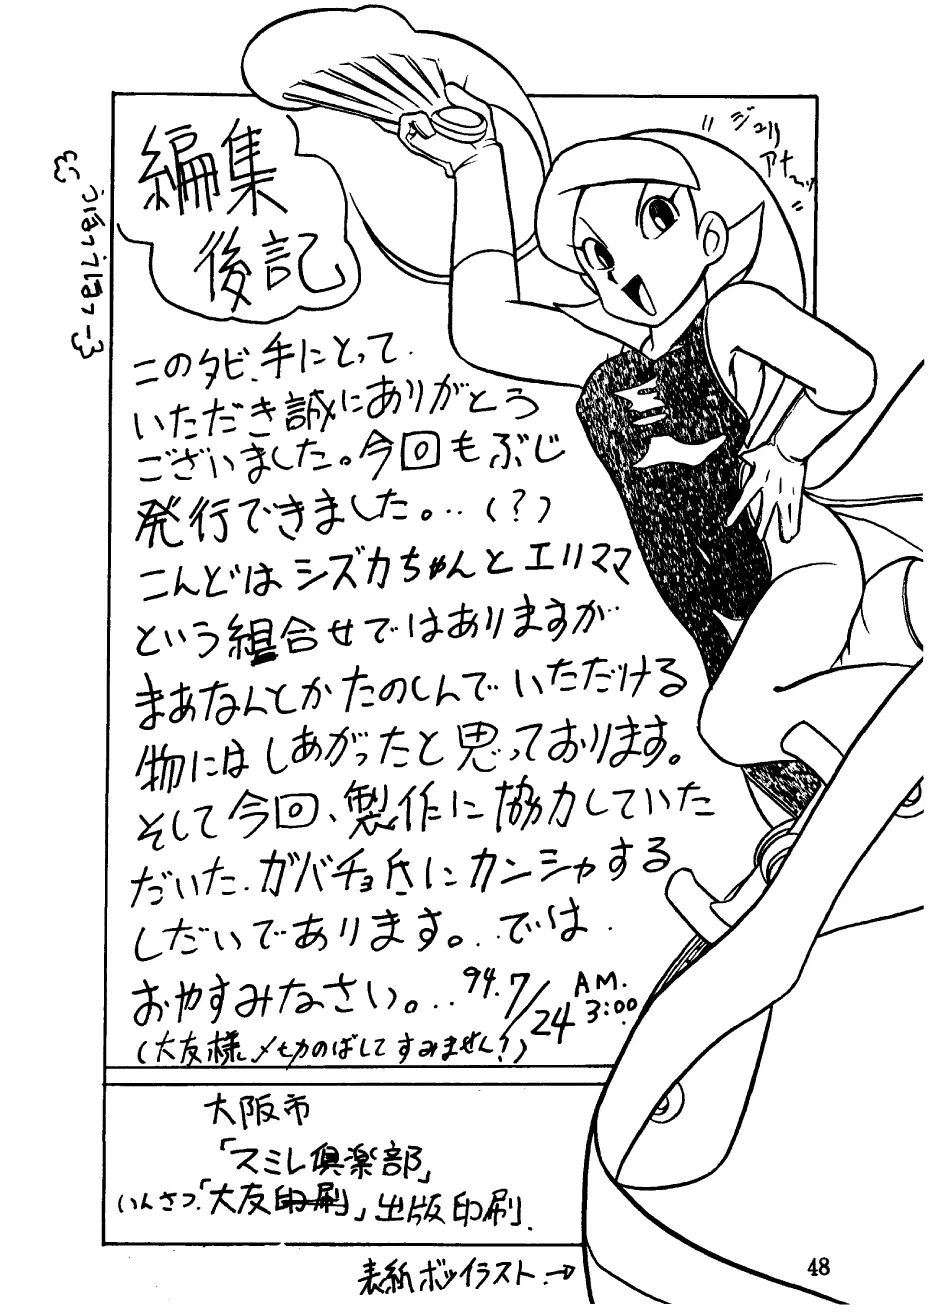 編集
後記
"ジュリ
アナーッ"
うほっうほっー
このタビ、手にとって、
いただき誠にありがとう
ございました。今回もぶじ
発行できました。‥(?)
こんどはシズカちゃんとエリママ
という組合せではありますが
まあなんとかたのしんでいただける
物にはしあがったと思っております。
そして今回、製作に協力していた
だいた、ガバチョ氏にカンシャする
しだいであります。‥では
おやすみなさい。‥94.7/24 AM.3:00
(大友様、〆切のばしてすみません!)
大阪市
「スミレ倶楽部」
いんさつ「大友印刷」出版印刷.
表紙ボツイラスト→
48